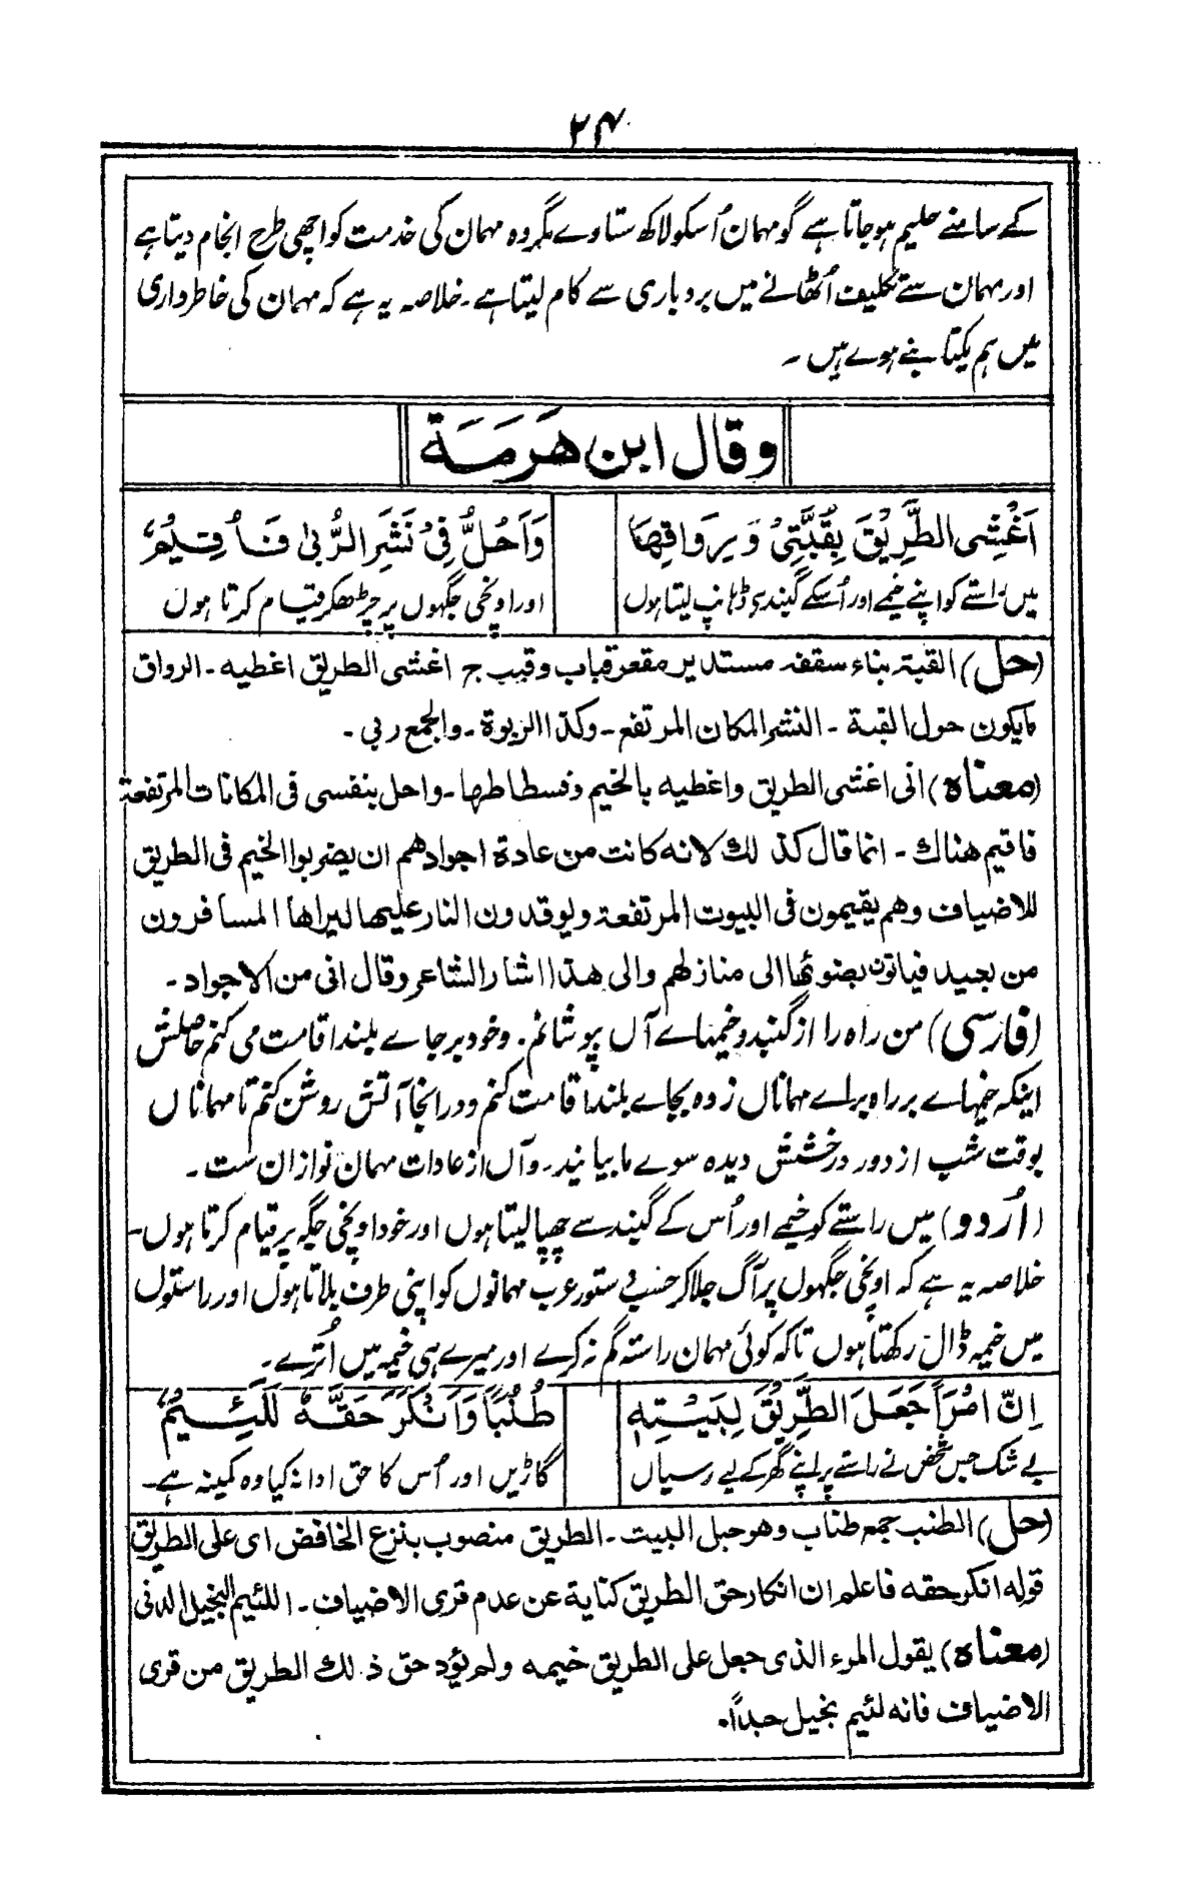 ۲۴
کے سامنے حلیم ہو جاتا ہے گو مہمان اُسکو لاکھ ستاوے مگر وہ مہمان کی خدمت کو اچھی طرح انجام دیتا ہے
اور مہمان سے تکلیف اُٹھانے میں بردباری سے کام لیتا ہے۔ خلاصہ یہ ہے کہ مہمان کی خاطرداری
میں ہم یکتا بنے ہوے ہیں ۔
وقال ابن هَرَمَة
اَغْشِى الطَّرِيْقَ بِقُبَّتِىْ وَ رِوَاقِهَا
وَاَحُلُّ فِىْ نَشَزِ الرُّبٰى فَاُقِيْمُ
میں راستے کو اپنے خیمے اور اُسکے گنبد سے ڈہانپ لیتا ہوں
اور اونچی جگہوں پر چڑھکر قیام کرتا ہوں
(حل) القبة بناء سقفه مستدير مقعر قباب وقبب ج اغشى الطريق اغطيه ۔ الرواق
مايكون حول القبة ۔ النشز المكان المرتفع ۔ وكذا الربوة ۔ والجمع ربى ۔
(معناه) انى اغشى الطريق واغطيه بالخيم وفسطاطها ۔ واحل بنفسى فى المكانات المرتفعة
فاقيم هناك ۔ انما قال كذلك لانه كانت من عادة اجوادهم ان يضربوا الخيم فى الطريق
للاضياف وهم يقيمون فى البيوت المرتفعة ويوقدون النار عليها ليراها المسافرون
من بعيد فياتون بضوئها الى منازلهم والى هذا اشار الشاعر وقال انى من الاجواد ۔
(فارسی) من راہ را از گنبد و خیمہاے آں پوشانم۔ و خود بر جاے بلند اقامت می کنم حاصلش
اینکہ خیمہاے بر راہ براے مہماناں زدہ بجاے بلند اقامت کنم و در انجا آتش روشن کنم تا مہماناں
بوقت شب از دور درخشش دیدہ سوے ما بیایند۔ و آں از عادات مہمان نوازان ست ۔
(اُردو) میں راستے کو خیمے اور اُس کے گنبد سے چھپا لیتا ہوں اور خود اونچی جگہ پر قیام کرتا ہوں۔
خلاصہ یہ ہے کہ اونچی جگہوں پر آگ جلا کر حسب دستور عرب مہمانوں کو اپنی طرف بلاتا ہوں اور راستوں
میں خیمہ ڈال رکھتا ہوں تاکہ کوئی مہمان راستہ گم نہ کرے اور میرے ہی خیمہ میں اُترے ۔
اِنَّ امْرَأً جَعَلَ الطَّرِيْقَ لِبَيْتِهٖ
طُنُبًا وَاَنْكَرَ حَقَّهٗ لَلَئِيْمُ
بے شک جس شخص نے راستے پر اپنے گھر کے لیے رسیاں
گاڑیں اور اُس کا حق ادا نہ کیا وہ کمینہ ہے۔
(حل) الطنب جمعه طناب وهو حبل البيت ۔ الطريق منصوب بنزع الخافض اى على الطريق
قوله انكر حقه فاعلم ان انكار حق الطريق كناية عن عدم قرى الاضياف ۔ اللئيم البخيل الدنى
(معناه) يقول المرء الذى جعل على الطريق خيمه ولم يؤد حق ذلك الطريق من قرى
الاضياف فانه لئيم بخيل جداً۔